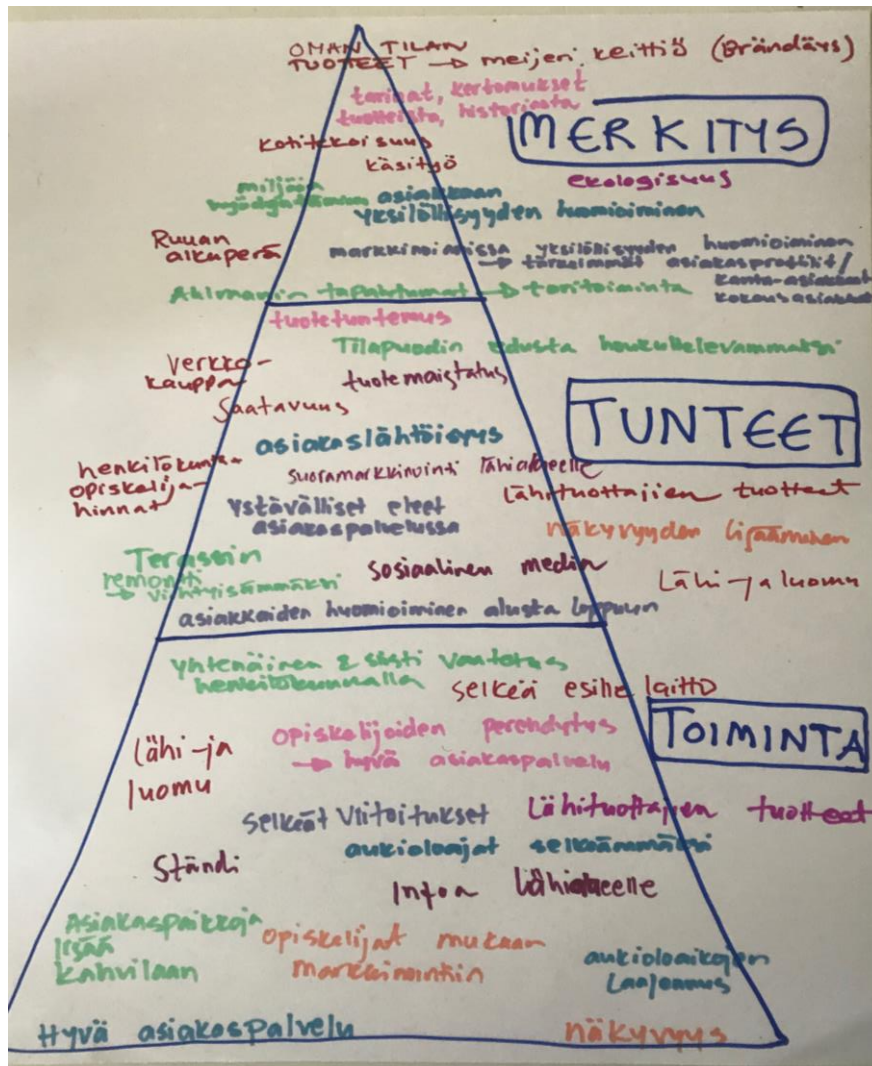 OMAN TILAN
TUOTTEET → meijeri, keittiö (Brändäys)
tarinat, kertomukset
tuotteista, historiasta
MERKITYS
kotitekoisuus
käsityö
ekologisuus
miljöön
asiakkaan
yksilöllisyyden huomioiminen
Ruuan
alkuperä
markkinoinnissa → yksilöllisyyden huomioiminen
tärkeimmät asiakasprofiilit/
kanta-asiakkaat
kokousasiakkaat
Ahlmanin tapahtumat → toritoiminta
tuotetuntemus
Tilapuodin edusta houkuttelevammaksi
Verkko-
kauppa
tuotemaistatus
Saatavuus
TUNTEET
asiakaslähtöisyys
henkilökunta-
opiskelija-
hinnat
suoramarkkinointi lähialueelle
Lähituottajien tuotteet
Ystävälliset eleet
asiakaspalvelussa
näkyvyyden lisääminen
Terassin
remontti
→ viihtyisämmäksi
sosiaalinen media
Lähi-ja luomu
asiakkaiden huomioiminen alusta loppuun
Yhtenäinen & siisti vaatetus
henkilökunnalla
selkeä esille laitto
TOIMINTA
Lähi-ja
luomu
opiskelijoiden perehdytys
→ hyvä asiakaspalvelu
selkeät viitoitukset
Lähituottajien tuotteet
aukioloajat selkeämmäksi
Ständi
Infoa lähialueelle
Asiakaspaikkoja
lisää
kahvilaan
opiskelijat mukaan
markkinointiin
aukioloaikojen
laajennus
Hyvä asiakaspalvelu
näkyvyys